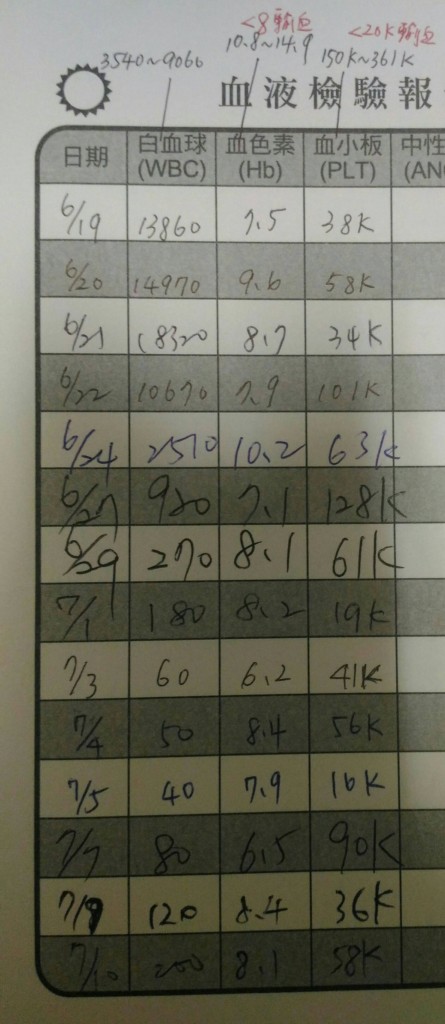 <8輸血 <20K輸血
3540~9060 10.8~14.9 150K~361K
血液檢驗報
日期 白血球 血色素 血小板 中性
(WBC) (Hb) (PLT) (AN
6/19 13860 7.5 38K
6/20 14970 9.6 58K
6/21 18320 8.7 34K
6/22 10670 7.9 101K
6/24 2510 10.2 63K
6/27 920 7.1 128K
6/29 270 8.1 61K
7/1 180 8.2 19K
7/3 60 6.2 41K
7/4 50 8.4 56K
7/5 40 7.9 16K
7/7 80 6.5 90K
7/9 120 8.4 36K
7/10 200 8.1 58K